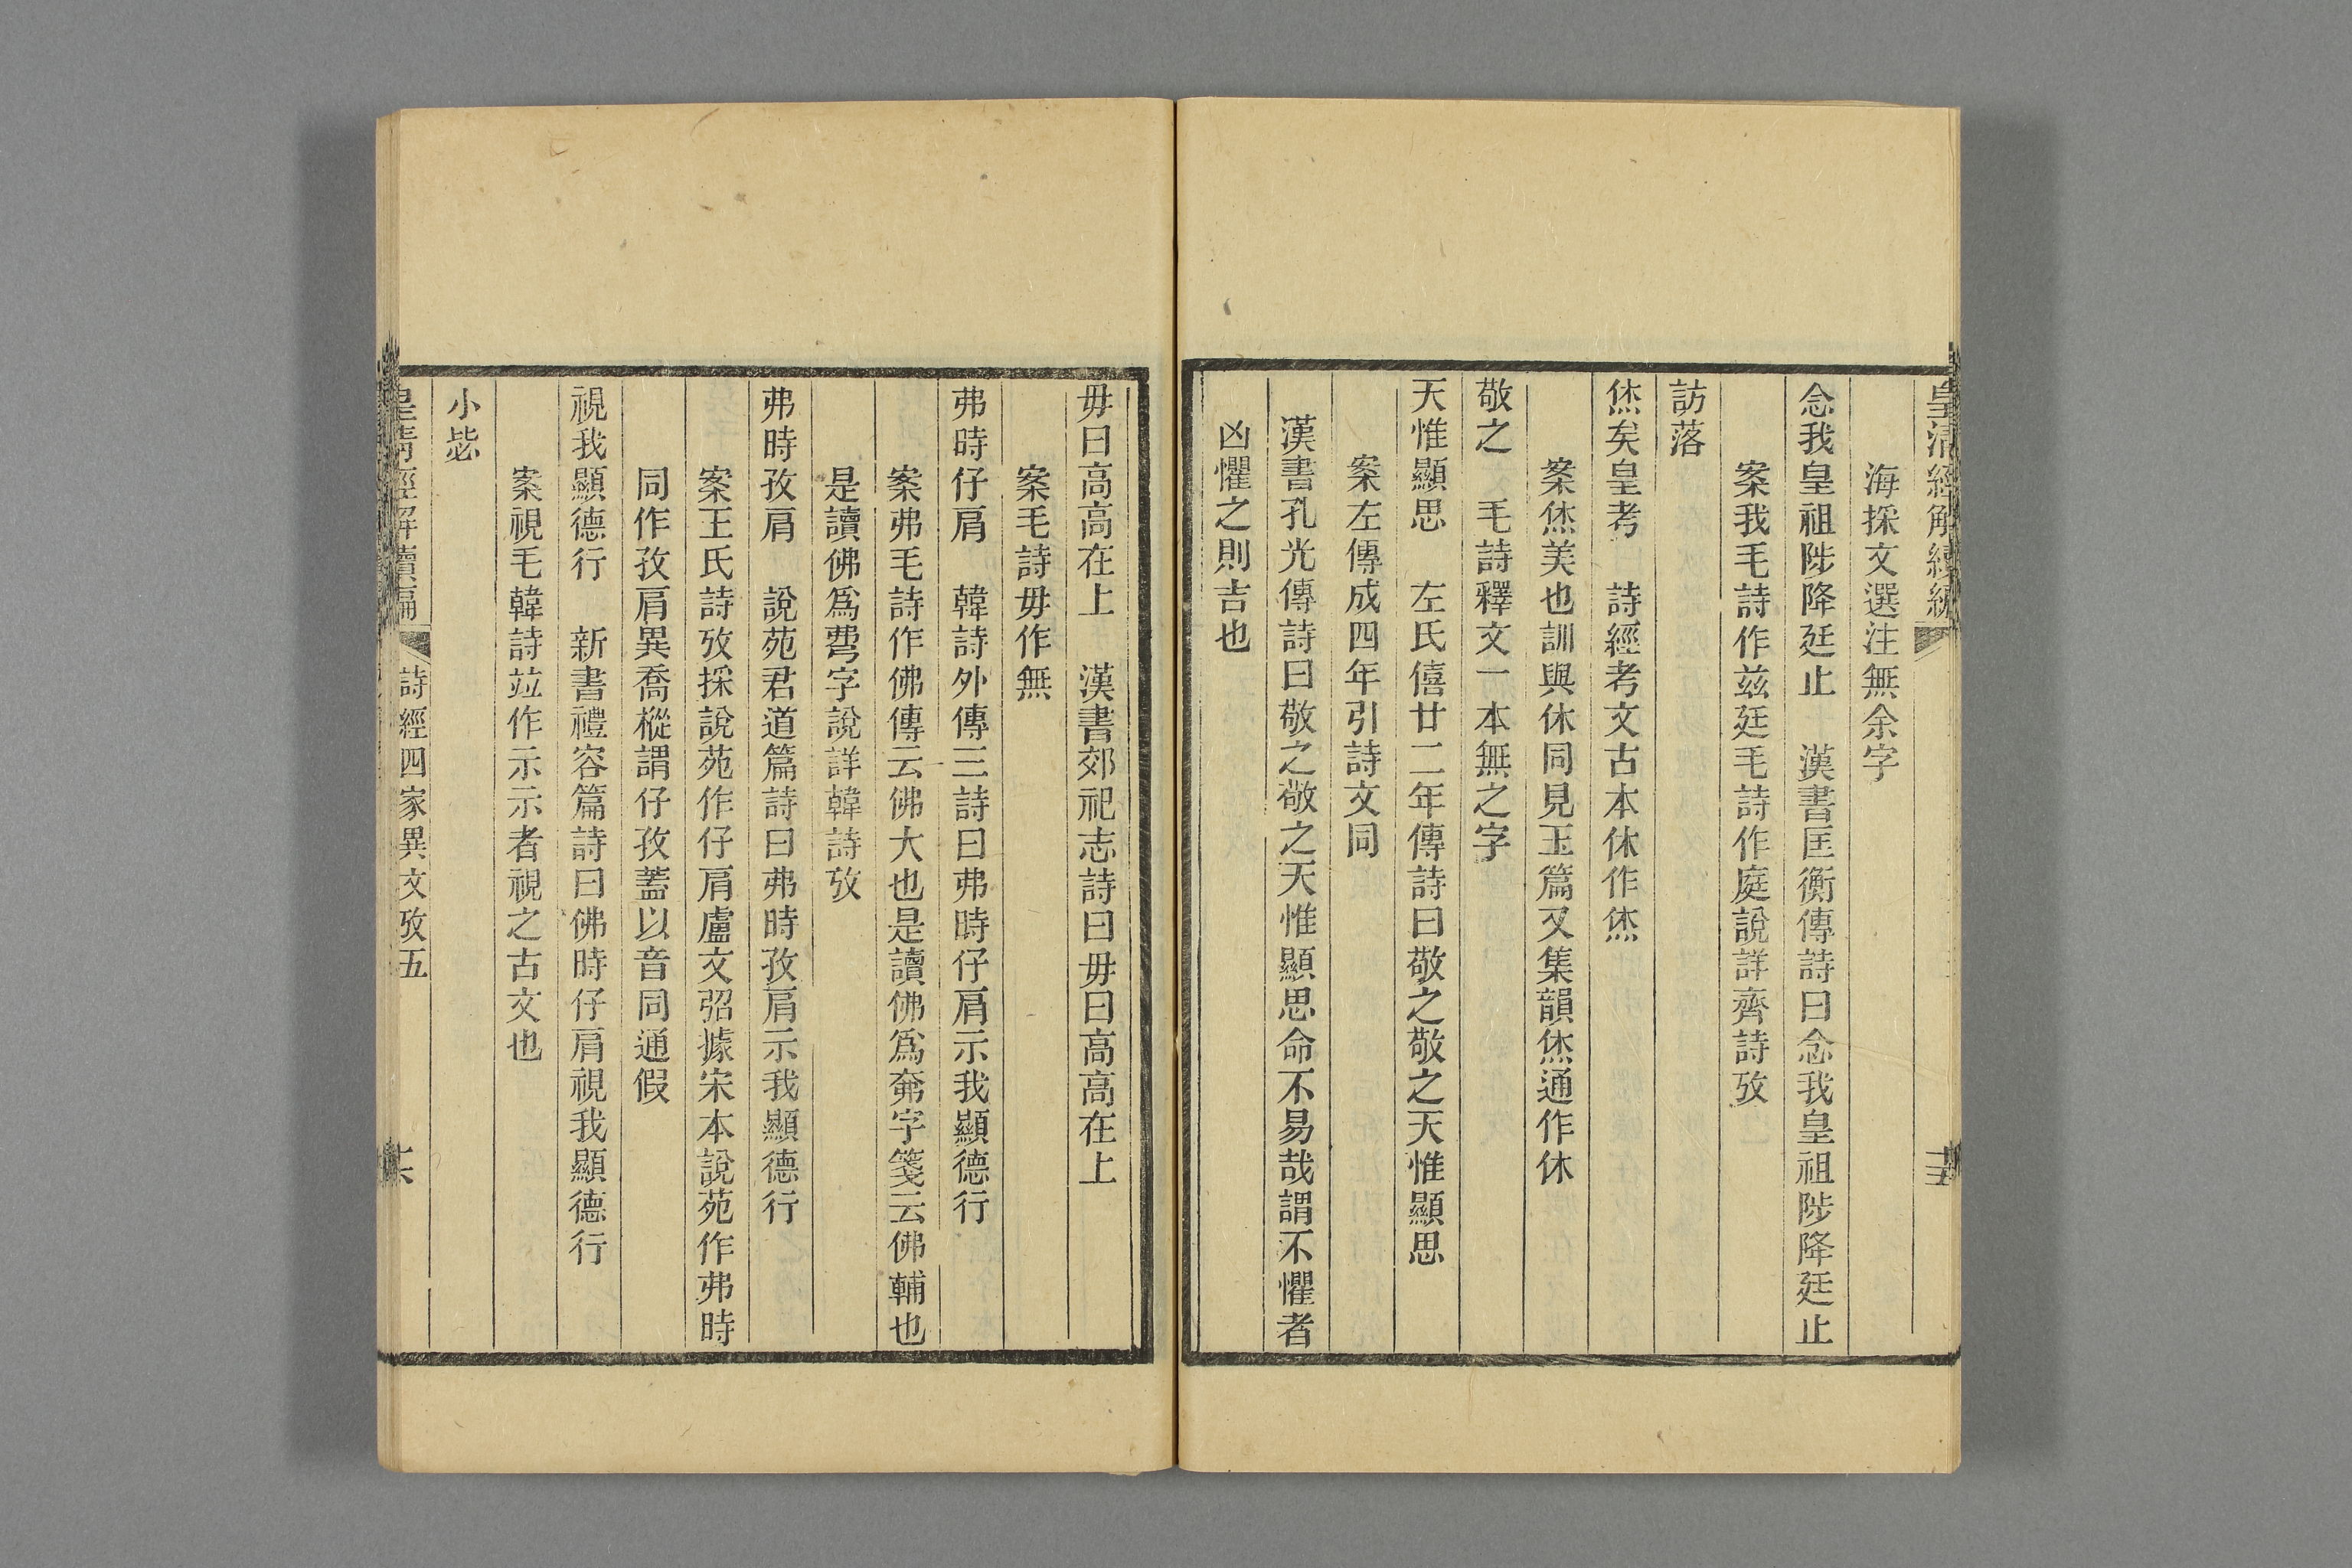 皇清經解續編
海採文選注無余字
念我皇祖陟降廷止　漢書匡衡傳詩曰念我皇祖陟降廷止
案我毛詩作兹廷毛詩作庭說詳齊詩攷
訪落
恷矣皇考　詩經考文古本休作恷
案恷美也訓與休同見玉篇又集韻恷通作休
敬之　毛詩釋文一本無之字
天惟顯思　左氏僖廿二年傳詩曰敬之敬之天惟顯思
案左傳成四年引詩文同
漢書孔光傳詩曰敬之敬之天惟顯思命不易哉謂不懼者
凶懼之則吉也
毋曰高高在上　漢書郊祀志詩曰毋曰高高在上
案毛詩毋作無
弗時仔肩　韓詩外傳三詩曰弗時仔肩示我顯德行
案弗毛詩作佛傳云佛大也是讀佛爲奔字箋云佛輔也
是讀佛爲字說詳韓詩攷
弗時孜肩　說苑君道篇詩曰弗時孜肩示我顯德行
案王氏詩攷採說苑作仔肩盧文弨據宋本說苑作弗時
同作孜肩異喬樅謂仔孜蓋以音同通假
視我顯德行　新書禮容篇詩曰佛時仔肩視我顯德行
案視毛韓詩竝作示示者視之古文也
小毖
皇清經解續編　詩經四家異文攷五